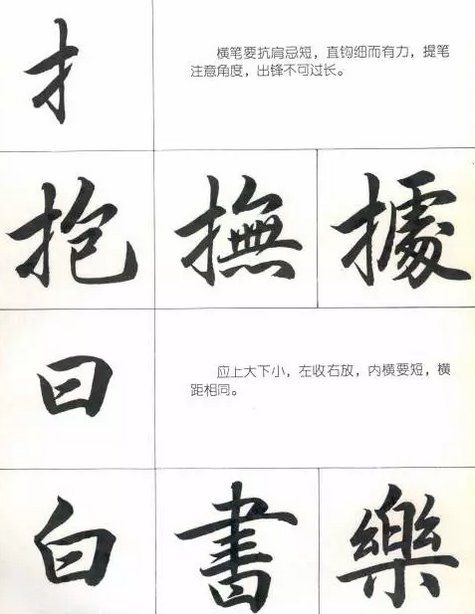 扌
横笔要抗肩忌短，直钩细而有力，提笔
注意角度，出锋不可过长。
抱 撫 據
曰
应上大下小，左收右放，内横要短，横
距相同。
白 書 樂